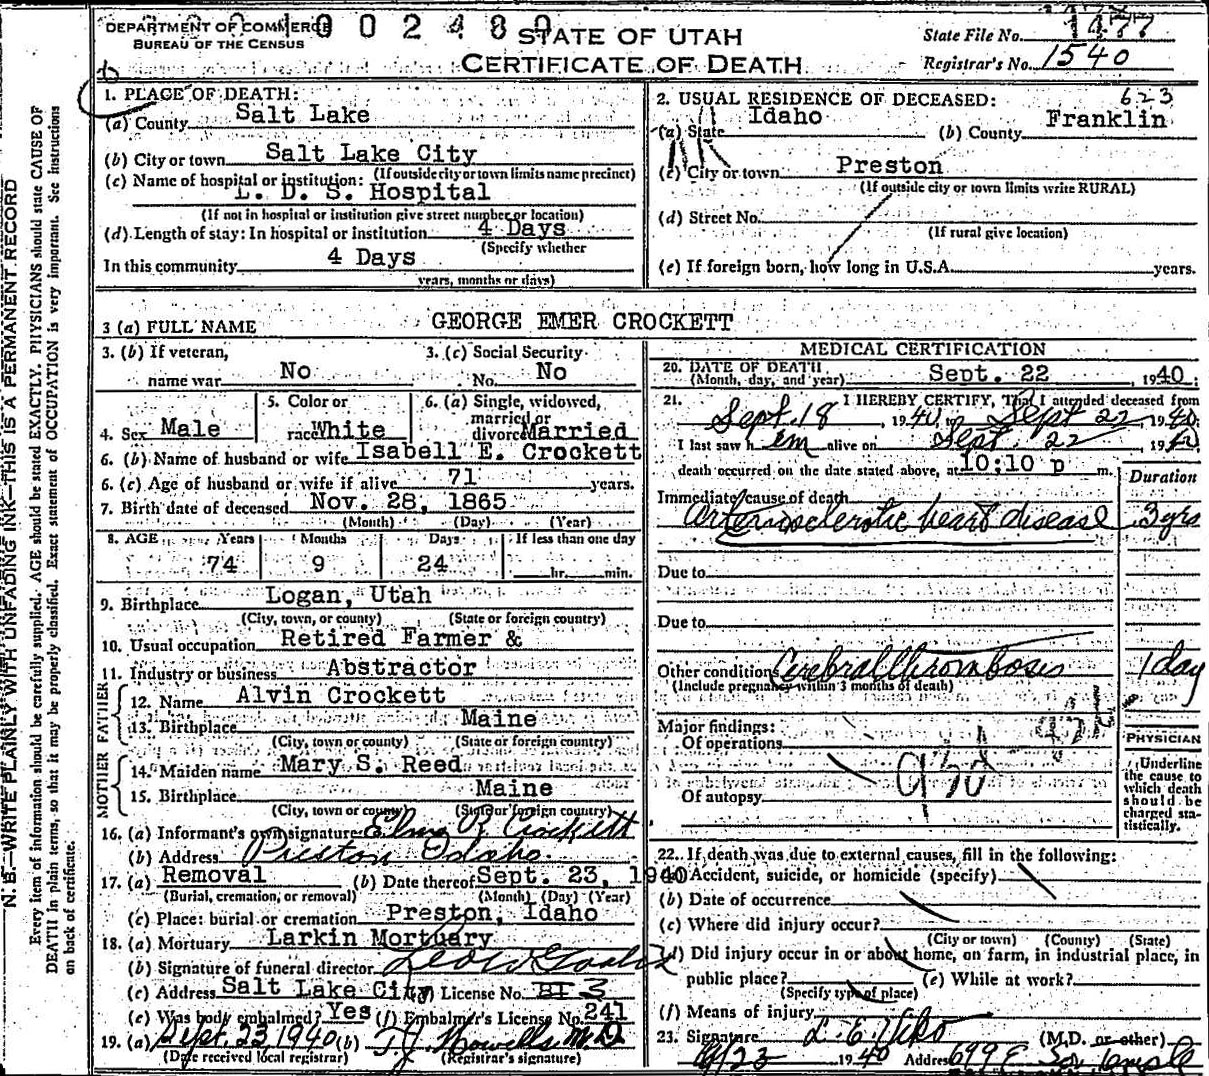 DEPARTMENT OF COMMERCE
BUREAU OF THE CENSUS
STATE OF UTAH
CERTIFICATE OF DEATH
State File No. 1477
Registrar's No. 1540
1. PLACE OF DEATH:
(a) County Salt Lake
(b) City or town Salt Lake City
(If outside city or town limits name precinct)
(c) Name of hospital or institution:
L. D. S. Hospital
(If not in hospital or institution give street number or location)
(d) Length of stay: In hospital or institution 4 Days
(Specify whether
In this community 4 Days
years, months or days)
2. USUAL RESIDENCE OF DECEASED: 623
(a) State Idaho (b) County Franklin
(c) City or town Preston
(If outside city or town limits write RURAL)
(d) Street No.
(If rural give location)
(e) If foreign born, how long in U.S.A. years.
3 (a) FULL NAME GEORGE EMER CROCKETT
3. (b) If veteran, name war No
3. (c) Social Security No. No
4. Sex Male
5. Color or race White
6. (a) Single, widowed, married or divorced Married
6. (b) Name of husband or wife Isabell E. Crockett
6. (c) Age of husband or wife if alive 71 years.
7. Birth date of deceased Nov. 28, 1865
(Month) (Day) (Year)
8. AGE Years Months Days If less than one day
74 9 24 hr. min.
9. Birthplace Logan, Utah
(City, town, or county) (State or foreign country)
10. Usual occupation Retired Farmer &
11. Industry or business Abstractor
FATHER
12. Name Alvin Crockett
13. Birthplace Maine
(City, town or county) (State or foreign country)
MOTHER
14. Maiden name Mary S. Reed
15. Birthplace Maine
(City, town or county) (State or foreign country)
16. (a) Informant's own signature Crockett
(b) Address Preston Idaho
17. (a) Removal (b) Date thereof Sept. 23, 1940
(Burial, cremation, or removal) (Month) (Day) (Year)
(c) Place: burial or cremation Preston, Idaho
18. (a) Mortuary Larkin Mortuary
(b) Signature of funeral director
(c) Address Salt Lake City (d) License No. 3
(e) Was body embalmed? Yes (f) Embalmer's License No. 241
19. (a) Sept. 23, 1940 (b) T.J. Howells M.D
(Date received local registrar) (Registrar's signature)
MEDICAL CERTIFICATION
20. DATE OF DEATH
(Month, day, and year) Sept. 22, 1940
21. I HEREBY CERTIFY, That I attended deceased from
Sept. 18, 1940, to Sept 22, 1940
I last saw him alive on Sept. 22, 1940
death occurred on the date stated above, at 10:10 p m.
Duration
Immediate cause of death
Arteriosclerotic heart disease 3 yrs
Due to
Due to
Other conditions Cerebral thrombosis 1 day
(Include pregnancy within 3 months of death)
Major findings:
Of operations
Of autopsy
PHYSICIAN
Underline the cause to which death should be charged statistically.
22. If death was due to external causes, fill in the following:
(a) Accident, suicide, or homicide (specify)
(b) Date of occurrence
(c) Where did injury occur?
(City or town) (County) (State)
(d) Did injury occur in or about home, on farm, in industrial place, in
public place? (e) While at work?
(Specify type of place)
(f) Means of injury
23. Signature L. E. Viko (M.D. or other)
9/23 1940 Address 699 E So Temple
N. B.—WRITE PLAINLY WITH UNFADING INK—THIS IS A PERMANENT RECORD
Every item of information should be carefully supplied. AGE should be stated EXACTLY. PHYSICIANS should state CAUSE OF
DEATH in plain terms, so that it may be properly classified. Exact statement of OCCUPATION is very important. See instructions
on back of certificate.